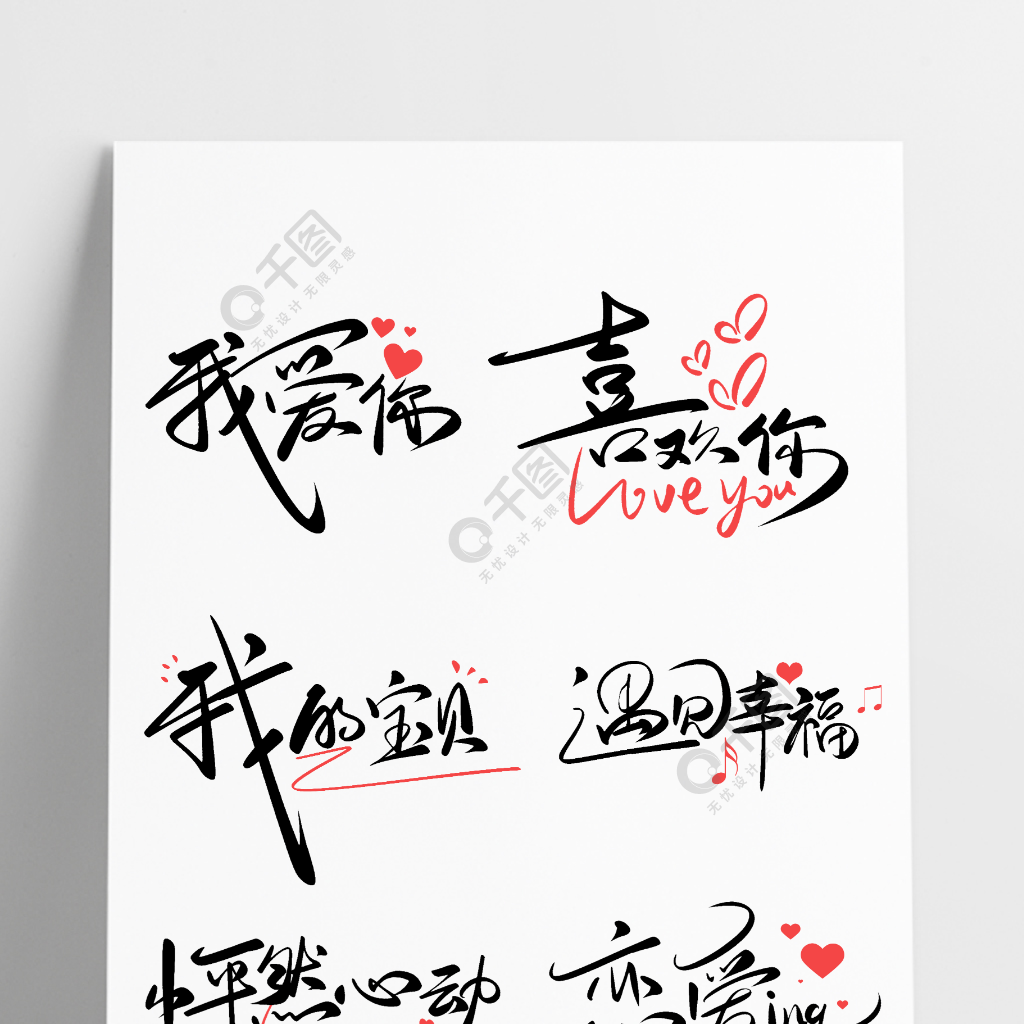 千图
无忧设计 无限灵感
我爱你
喜欢你
love you
千图
无忧设计 无限灵感
我的宝贝
遇见幸福
千图
无忧设计 无限灵感
怦然心动
恋爱ing